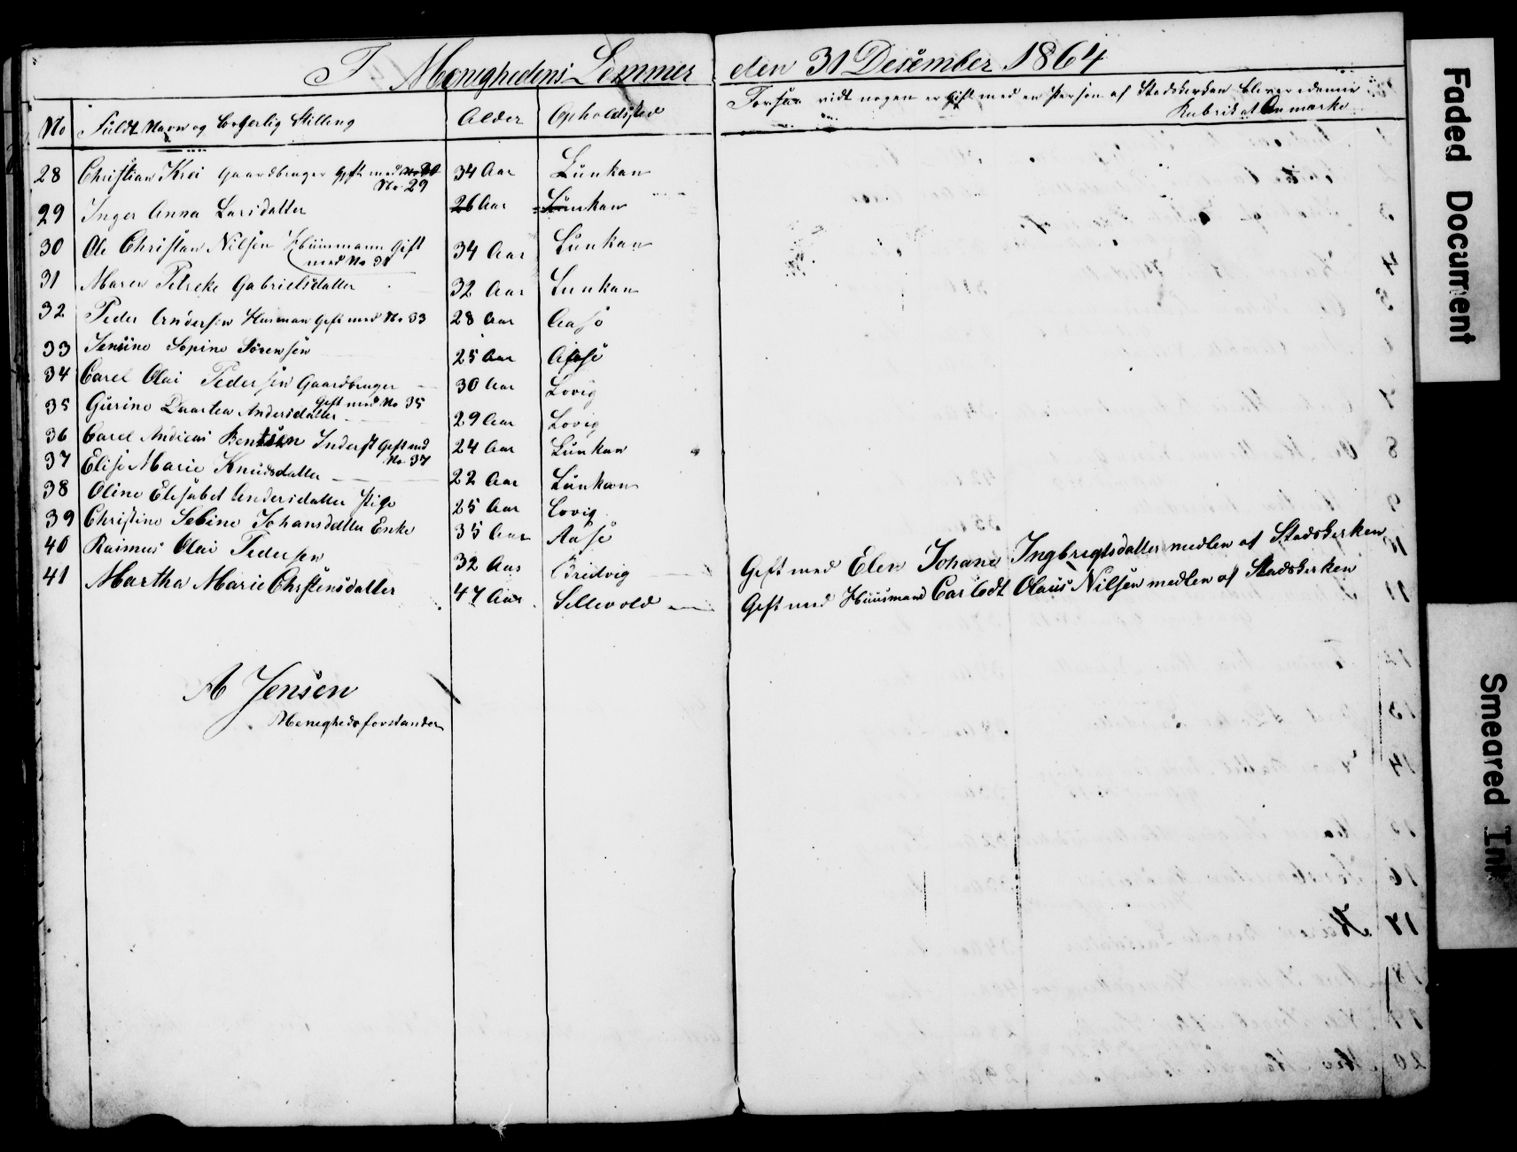 I Menighedens Lemmer den 31 December 1864
No Fuldt Navn og borgerlig Stilling Alder Opholdsted Forsaa vidt nogen er gift med en Person af Stadskirken bliver i denne
Rubrik at anmærke
28 Christian Krei Gaardbruger gift med No 30 34 Aar Lunkan
No 29
29 Inger Anna Larsdatter 26 Aar Lunkan
30 Ole Christian Nilsen Huusmann Gift 34 Aar Lunkan
med No 31
31 Maren Petreke Gabrielsdatter 32 Aar Lunkan
32 Peder Andersen Husman Gift med No 33 28 Aar Aase
33 Jensine Sopine Sörensen 25 Aar Aase
34 Carel Olai Pedersen Gaardbruger 30 Aar Lovig
Gift med No 35
35 Gurine Daartea Andersdatter 29 Aar Lovig
36 Carel Andreas Bentsen Inderst Gift med 24 Aar Lunkan
No 37
37 Elise Marie Knudsdatter 22 Aar Lunkan
38 Oline Elisabet Andersdatter Pige 25 Aar Lovig
39 Christine Sebine Johansdatter Enke 35 Aar Aase
40 Rasmus Olai Pedersen 32 Aar Bredvig Gift med Elen Johana Ingbregtsdatter medlem af Stadskirken
41 Martha Marie Christensdatter 47 Aar Sellevold Gift med Huusmand Carl Edt Olaus Nilsen medlem af Stadskirken
A Jensen
Menighedsforstander
Faded Document
Smeared Ink